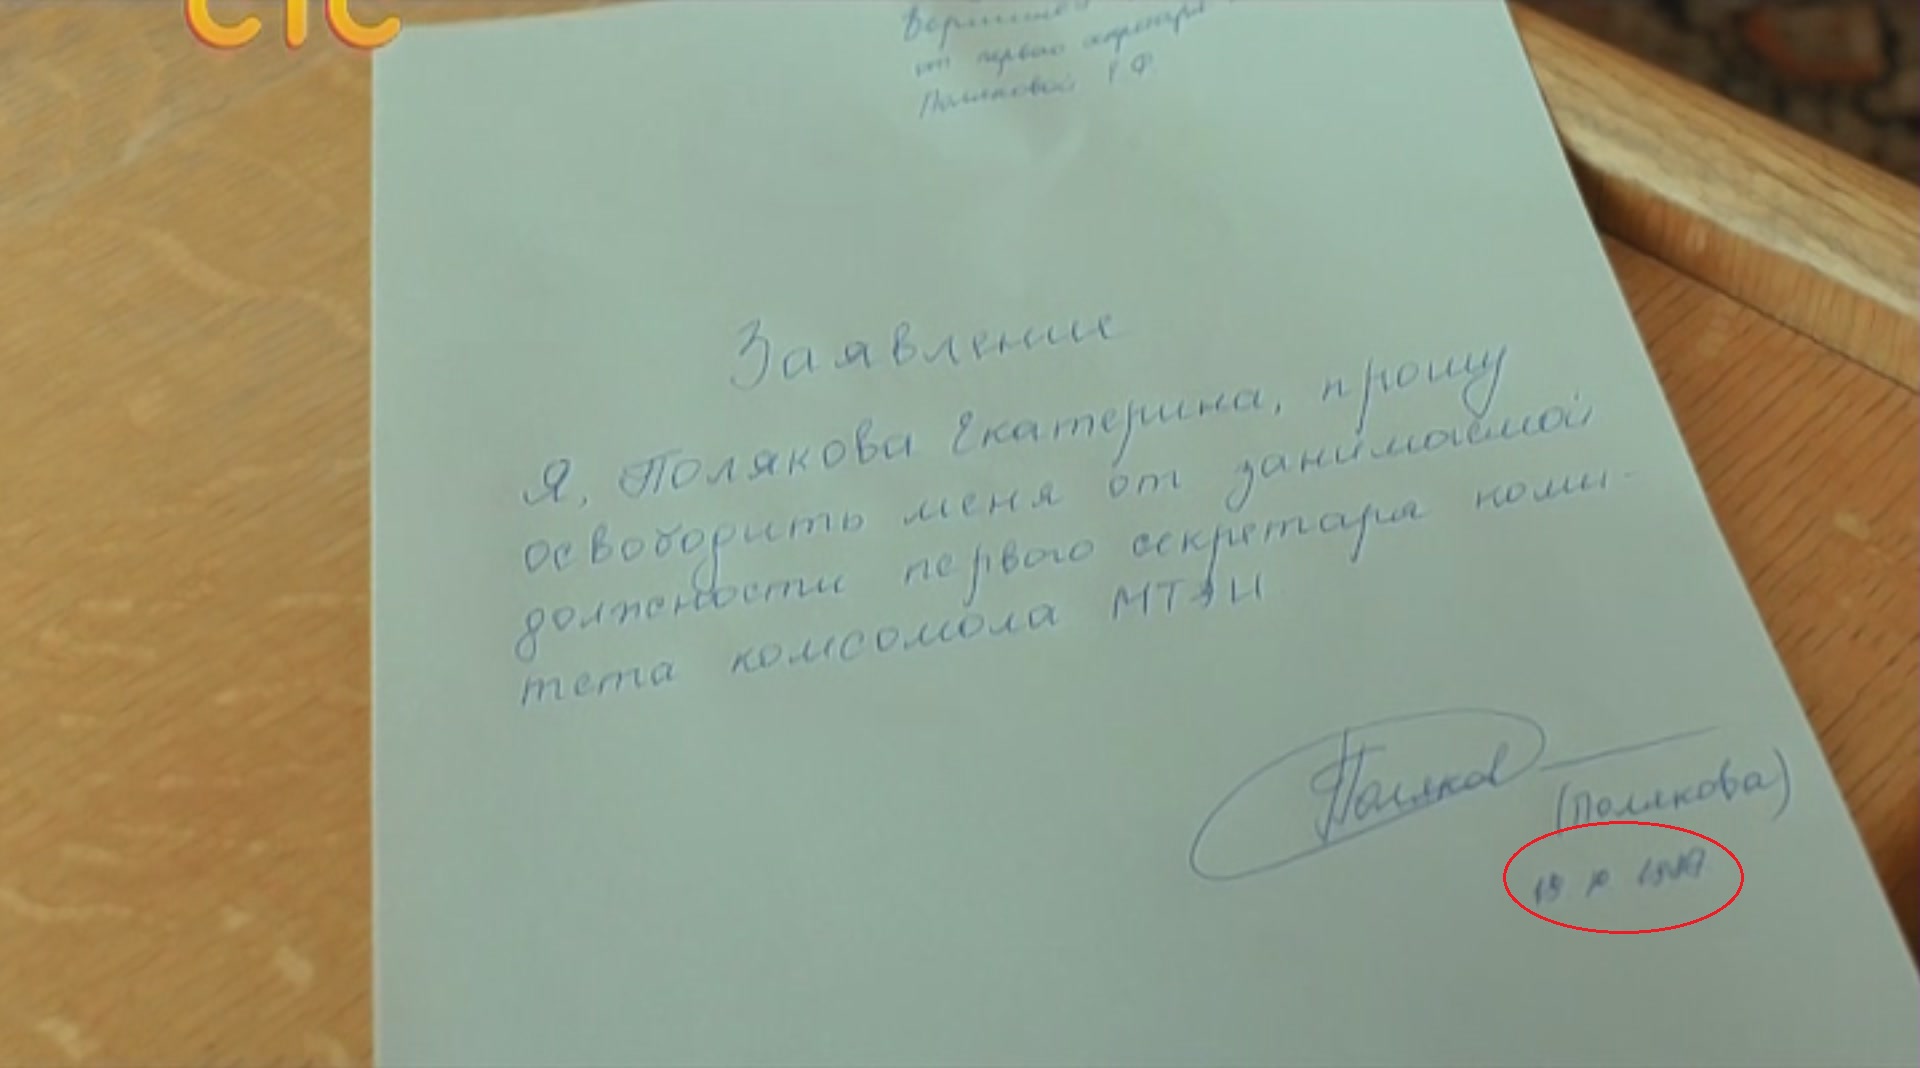 СТС
от первого секретаря
Поляковой Е Ф
Заявление
Я, Полякова Екатерина, прошу
освободить меня от занимаемой
должности первого секретаря коми-
тета комсомола МТЭИ
Поляков
(Полякова)